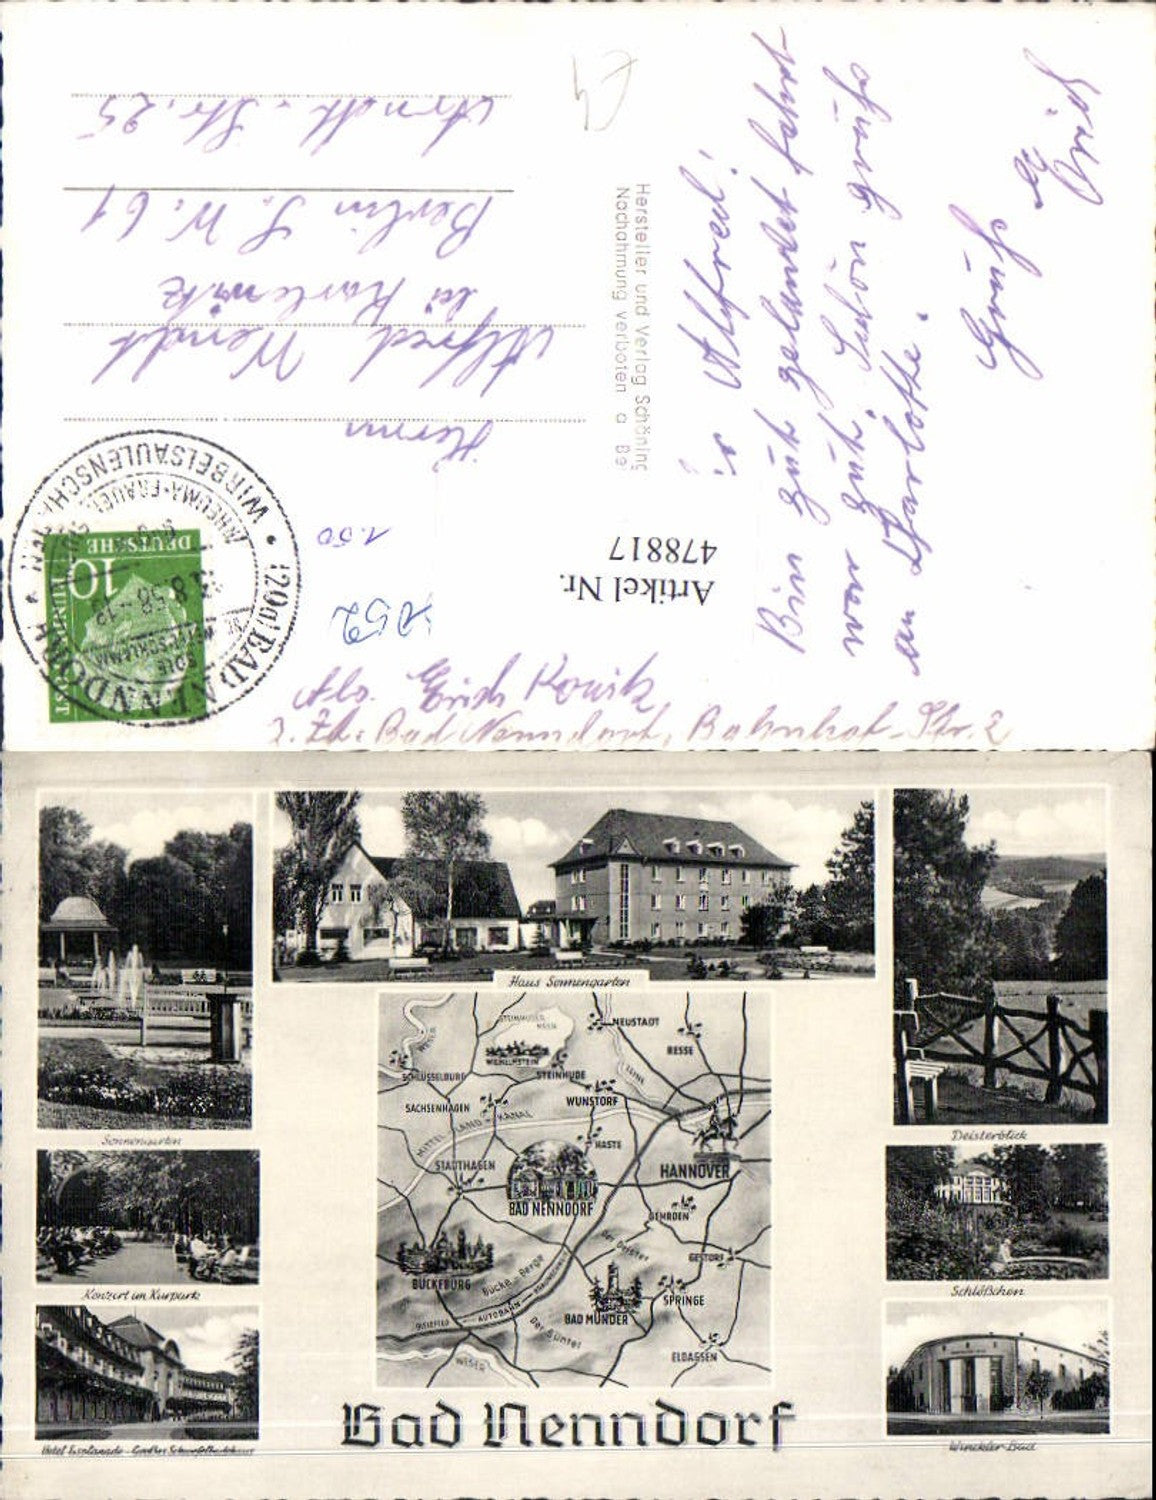 Herrn
Alfred Wendt
bei Karlewitz
Berlin S.W. 61
Arndt-Str. 25
Hersteller und Verlag Schöning
Nachahmung verboten
Alfred!
Bin gut gelandet fahrt
war gut. Schön grüß
an Charlotte.
Gruß
Erich
DEUTSCHE
10
BUNDESPOST
(20a) BAD NENNDORF
WIRBELSÄULENSCHÄDEN
RHEUMA-FRAUEN
SOLE
SCHLAMM
8.58
1.50
252
Artikel Nr.
478817
Abs. Erich Konitz
z. Zt. Bad Nenndorf, Bahnhof-Str. 2
Haus Sonnengarten
Sonnengarten
Deisterblick
Konzert im Kurpark
Schlößchen
Hotel Esplanade
Winckler-Bad
STEINHUDER MEER
NEUSTADT
RESSE
WESER
WILHELMSTEIN
SCHLÜSSELBURG
STEINHUDE
LEINE
SACHSENHAGEN
WUNSTORF
MITTEL-LAND-KANAL
HASTE
STADTHAGEN
HANNOVER
BAD NENNDORF
GEHRDEN
Der Deister
GESTORF
BÜCKEBURG
Bücke Berge
SPRINGE
BIELEFELD
AUTOBAHN
BRAUNSCHWEIG
BAD MÜNDER
Der Süntel
ELDAGSEN
WESER
Bad Nenndorf